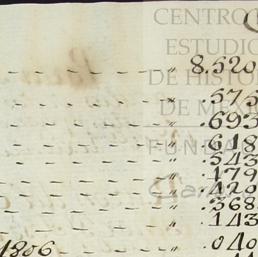 CENTRO
ESTUDIO
DE HISTO
DE MÉX
FUNDA
8.520
.575
.693
.618
.543
.179
.420
.368
.143
1806 .040